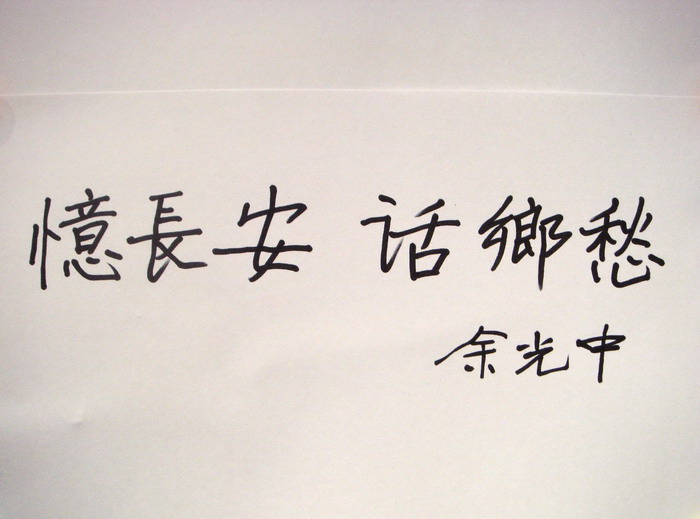 憶長安 话鄉愁
余光中